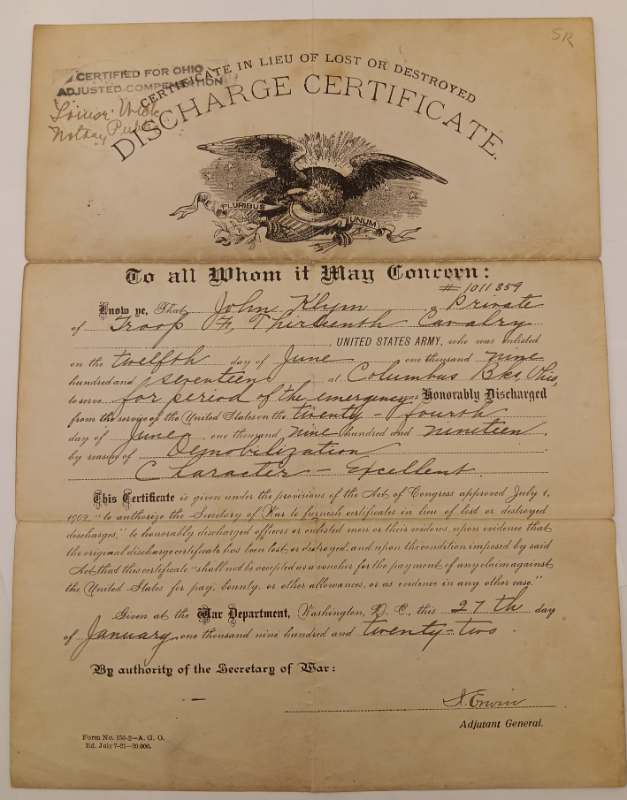 SR
CERTIFIED FOR OHIO
ADJUSTED COMPENSATION
Notary Public
CERTIFICATE IN LIEU OF LOST OR DESTROYED
DISCHARGE CERTIFICATE.
PLURIBUS UNUM
To all Whom it May Concern:
#1011359
Know ye, That John Klym Private
of Troop F, Thirteenth Cavalry
, UNITED STATES ARMY, who was enlisted
on the twelfth day of June one thousand nine
hundred and seventeen at Columbus Bks, Ohio,
to serve for period of the emergency, Honorably Discharged
from the service of the United States on the twenty-fourth
day of June one thousand nine hundred and nineteen
by reason of Demobilization
Character - Excellent
This Certificate is given under the provisions of the Act of Congress approved July 1,
1902, "to authorize the Secretary of War to furnish certificates in lieu of lost or destroyed
discharges," to honorably discharged officers or enlisted men or their widows, upon evidence that
the original discharge certificate has been lost or destroyed, and upon the condition imposed by said
Act that this certificate "shall not be accepted as a voucher for the payment of any claim against
the United States for pay, bounty, or other allowances, or as evidence in any other case."
Given at the War Department, Washington, D. C., this 27th day
of January one thousand nine hundred and twenty-two.
By authority of the Secretary of War:
Erwin
Adjutant General.
Form No. 150-2—A. G. O.
Ed. July 7-21—20,000.